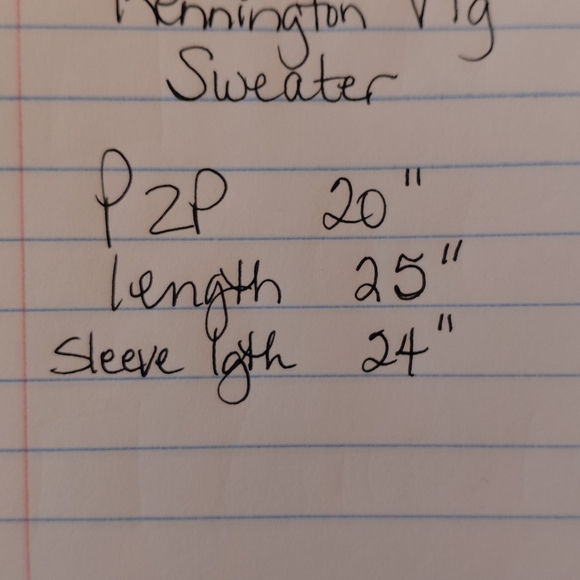 Kennington Pig
Sweater
P2P 20"
length 25"
Sleeve lgth 24"